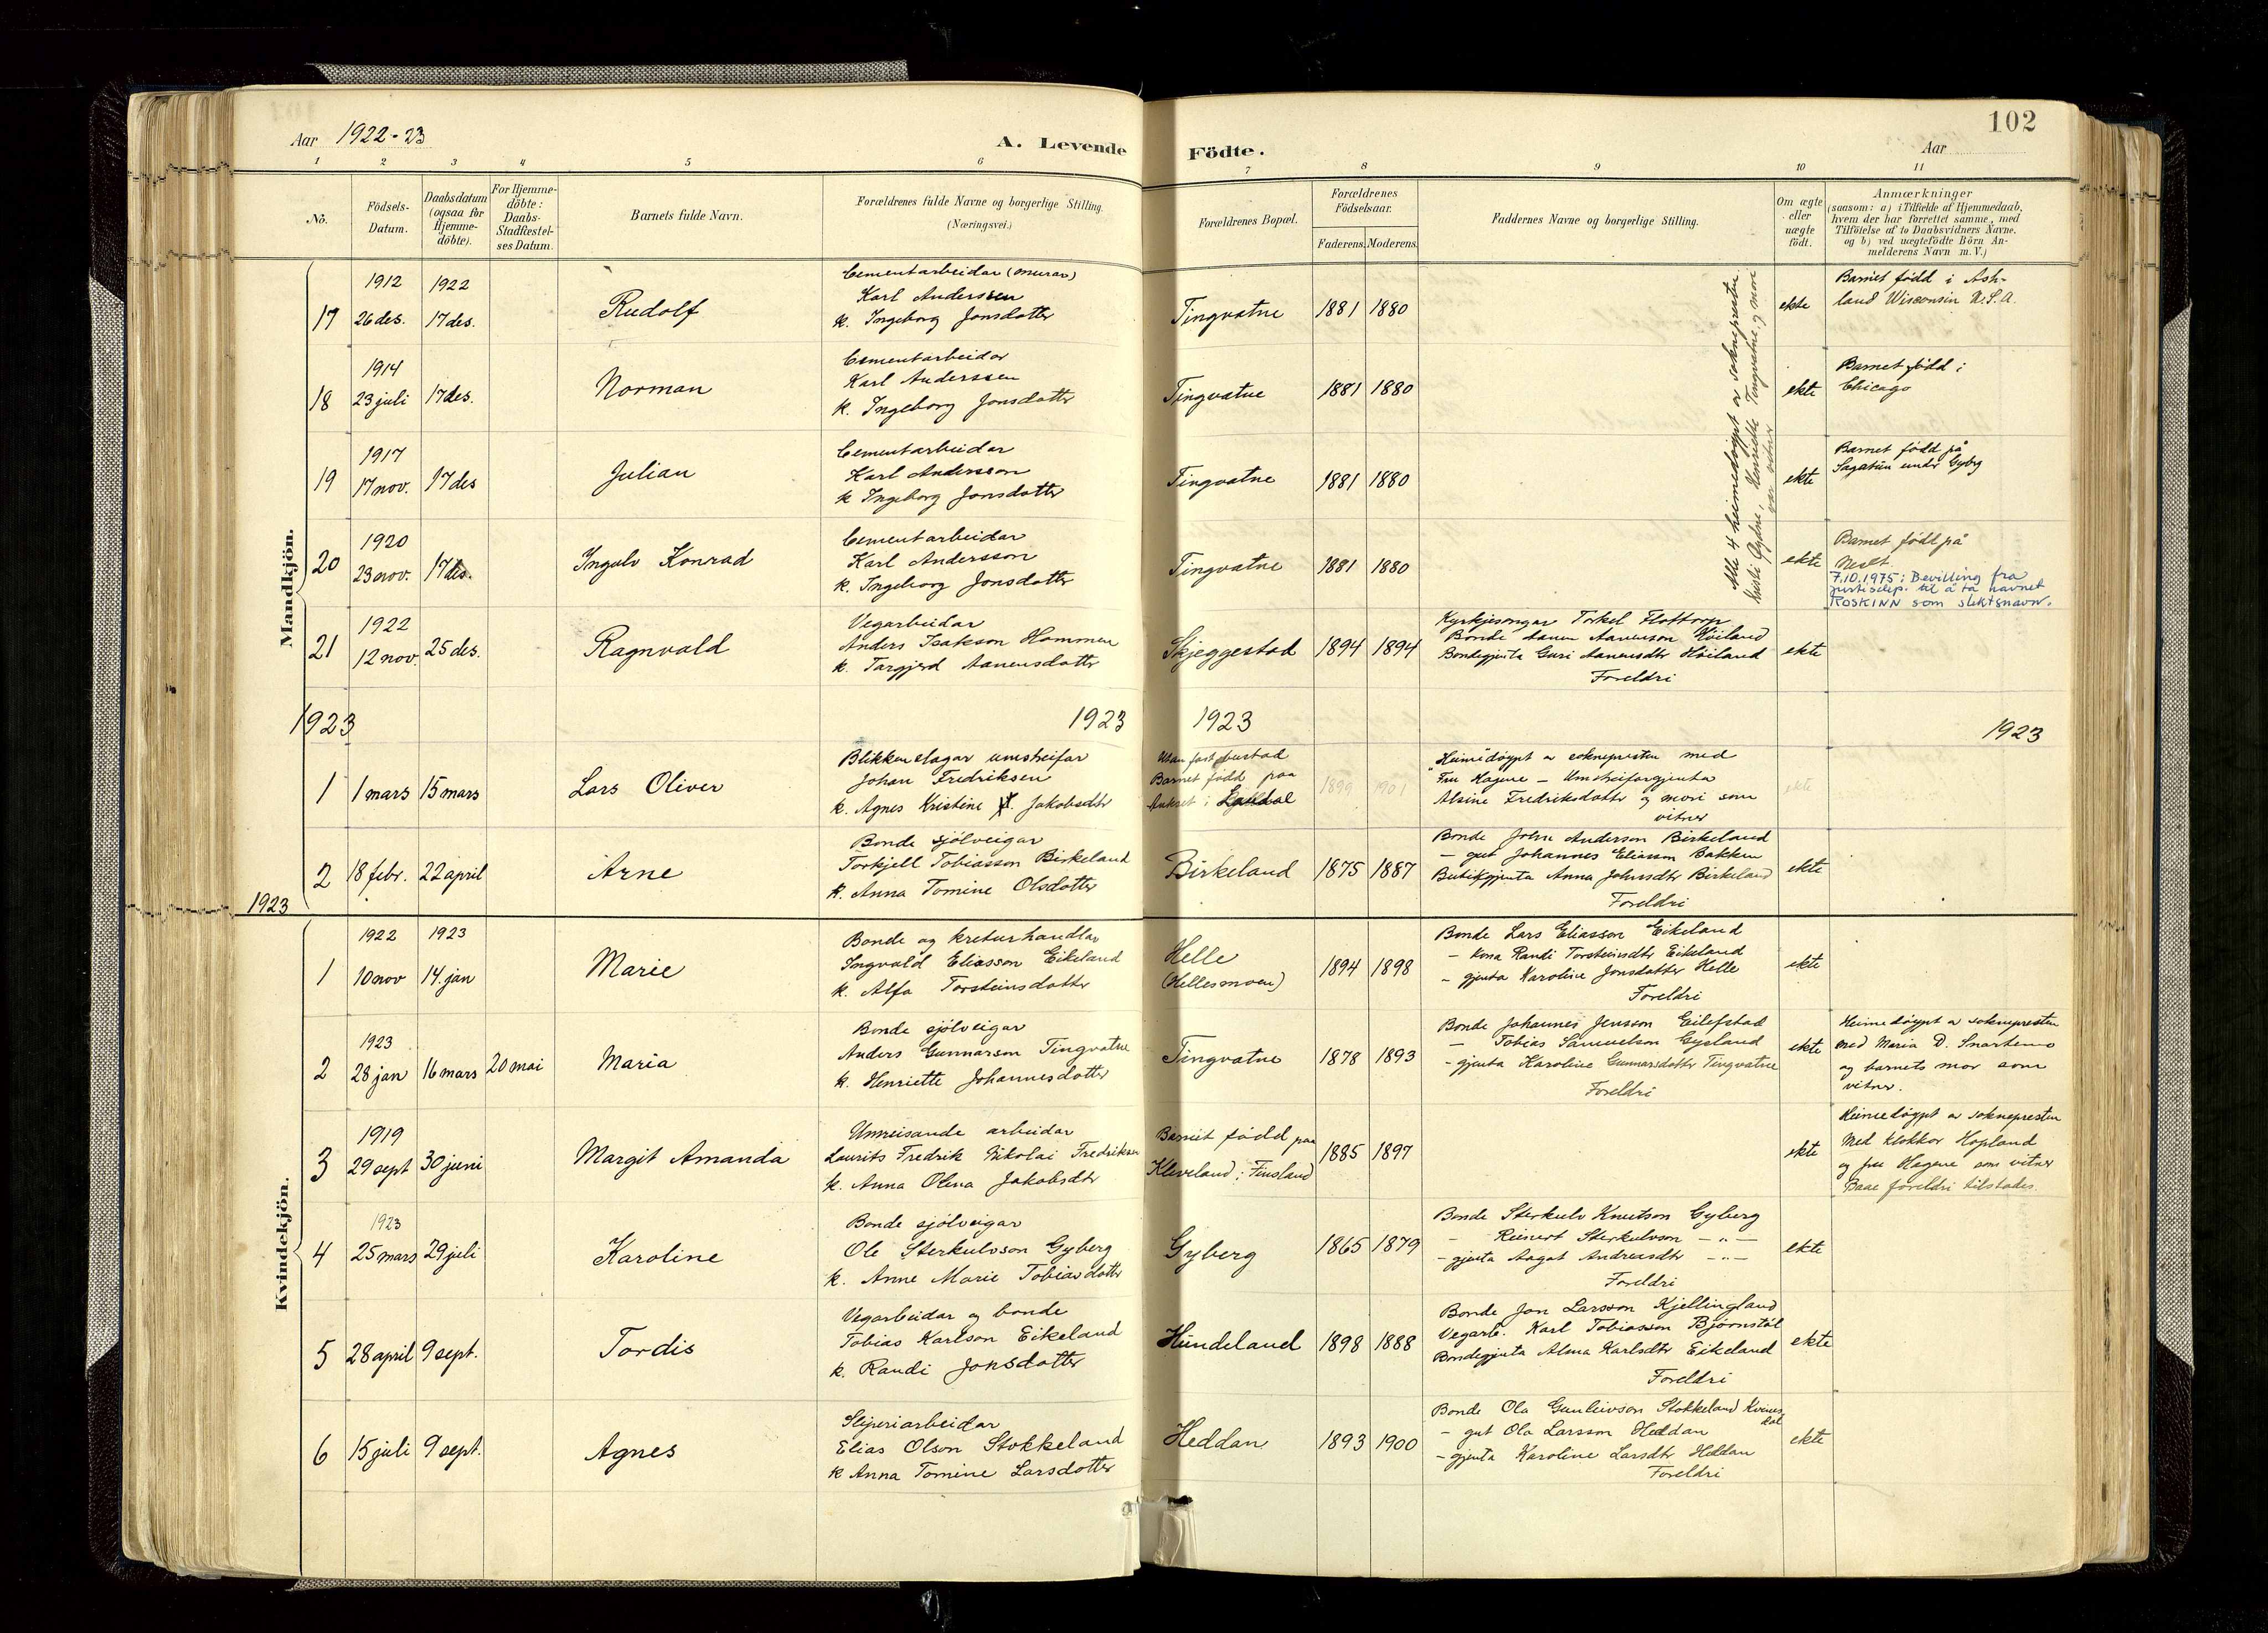 102
Aar 1922-23
A. Levende
Födte.
Aar
1 2 3 4 5 6 7 8 9 10 11
No.
Födsels-
Datum.
Daabsdatum
(ogsaa for
Hjemme-
döbte).
For Hjemme-
döbte:
Daabs-
Stadfæstel-
ses Datum.
Barnets fulde Navn.
Forældrenes fulde Navne og borgerlige Stilling.
(Næringsvei.)
Forældrenes Bopæl.
Forældrenes
Födselsaar.
Faderens. Moderens.
Faddernes Navne og borgerlige Stilling.
Om ægte
eller
uægte
födt.
Anmærkninger
(saasom: a) i Tilfælde af Hjemmedaab,
hvem der har forrettet samme, med
Tilföielse af to Daabsvidners Navne,
og b) ved uægtefödte Börn An-
melderens Navn m. V.)
Mandkjön.
17
1912
26 des.
1922
17 des.
Rudolf
Cementarbeidar (murar)
Karl Anderssen
k. Ingeborg Jonsdotter
Tingvatne
1881 1880
ekte
Barnet född i Ash-
land Wisconsin U.S.A.
Alle 4 heimedöypt av soknepresten.
Kristi Gydne, Henriette Tingvatne og mori
var vitner
18
1914
23 juli
17 des.
Norman
Cementarbeidar
Karl Anderssen
k. Ingeborg Jonsdotter
Tingvatne
1881 1880
ekte
Barnet född i
Chicago
19
1917
17 nov.
17 des
Julian
Cementarbeidar
Karl Andersson
k Ingeborg Jonsdotter
Tingvatne
1881 1880
ekte
Barnet född på
Sagatun under Gyberg
20
1920
23 nov.
17 des.
Ingulv Konrad
Cementarbeidar
Karl Andersson
k. Ingeborg Jonsdotter
Tingvatne
1881 1880
ekte
Barnet född på
7.10.1975: Bevilling fra
justisdep. til å ta navnet
ROSKINN som slektsnavn.
21
1922
12 nov.
25 des.
Ragnvald
Vegarbeidar
Anders Isakson Hommen
k. Targjerd Aanensdotter
Skjeggestad
1894 1894
Kyrkjesongar Torkel Flottorp
Bonde Aanen Aanenson Höiland
Bondegjenta Guri Aanensdtr Höiland
Foreldri
ekte
1923 1923 1923 1923
1
1 mars
15 mars
Lars Oliver
Blikkenslagar umstreifar
Johan Fredriksen
k. Agnes Kristine Jakobsdtr
Utan fast bustad
Barnet född paa
i Laudal
1899 1901
Heimedöypt av soknepresten med
Fru Hagene - Umstreifargjenta
Alsine Fredriksdotter og mori som
vitner
ekte
2
18 febr.
22 april
Arne
Bonde sjölveigar
Torkjell Tobiasson Birkeland
k. Anna Tomine Olsdotter
Birkeland
1875 1887
Bonde John Anderson Birkeland
- gut Johannes Eliasson Bakken
Butikgjenta Anna Johnsdtr Birkeland
Foreldri
ekte
1923
Kvindekjön.
1
1922
10 nov
1923
14. jan
Marie
Bonde og kreturhandlar
Ingvald Eliasson Eikeland
k. Alfa Torsteinsdotter
Helle
(Hellesmoen)
1894 1898
Bonde Lars Eliasson Eikeland
- kona Randi Torsteinsdtr Eikeland
- gjenta Karoline Jonsdotter Helle
Foreldri
ekte
2
1923
28 jan
16 mars
20 mai
Maria
Bonde sjölveigar
Anders Gunnarson Tingvatne
k. Henriette Johannesdotter
Tingvatne
1878 1893
Bonde Johannes Jensson Eilefstad
- Tobias Samuelson Gysland
- gjenta Karoline Gunnarsdotter Tingvatne
Foreldri
ekte
Heimedöypt av soknepresten
med Maria D. Snartemo
og barnets mor som
vitner.
3
1919
29 sept
30 juni
Margit Amanda
Umreisande arbeidar
Laurits Fredrik Nikolai Fredriksen
k. Anna Olena Jakobsdtr
Barnet född paa
Kleveland i Finsland
1885 1897
ekte
Heimedöypt av soknepresten
med klokkar Hopland
og fru Hagene som vitner
Baae foreldri tilstades.
4
1923
25 mars
29 juli
Karoline
Bonde sjölveigar
Ole Sterkulvson Gyberg
k. Anne Marie Tobiasdotter
Gyberg
1865 1879
Bonde Sterkulv Knutson Gyberg
- Reinert Sterkulvson - " -
- gjenta Aagot Andreasdtr - " -
Foreldri
ekte
5
28 april
9 sept.
Tordis
Vegarbeidar og bonde
Tobias Karlson Eikeland
k. Randi Jonsdotter
Hundeland
1898 1888
Bonde Jon Larsson Kjellingland
Vegarb. Karl Tobiasson Björnstöl
Bondegjenta Alma Karlsdtr Eikeland
Foreldri
ekte
6
15 juli
9 sept.
Agnes
Sliperiarbeidar
Elias Olson Stokkeland
k Anna Tomine Larsdotter
Heddan
1893 1900
Bonde Ola Gunleivson Stokkeland Kvines
dal
- gut Ola Larsson Heddan
- gjenta Karoline Larsdtr Heddan
Foreldri
ekte